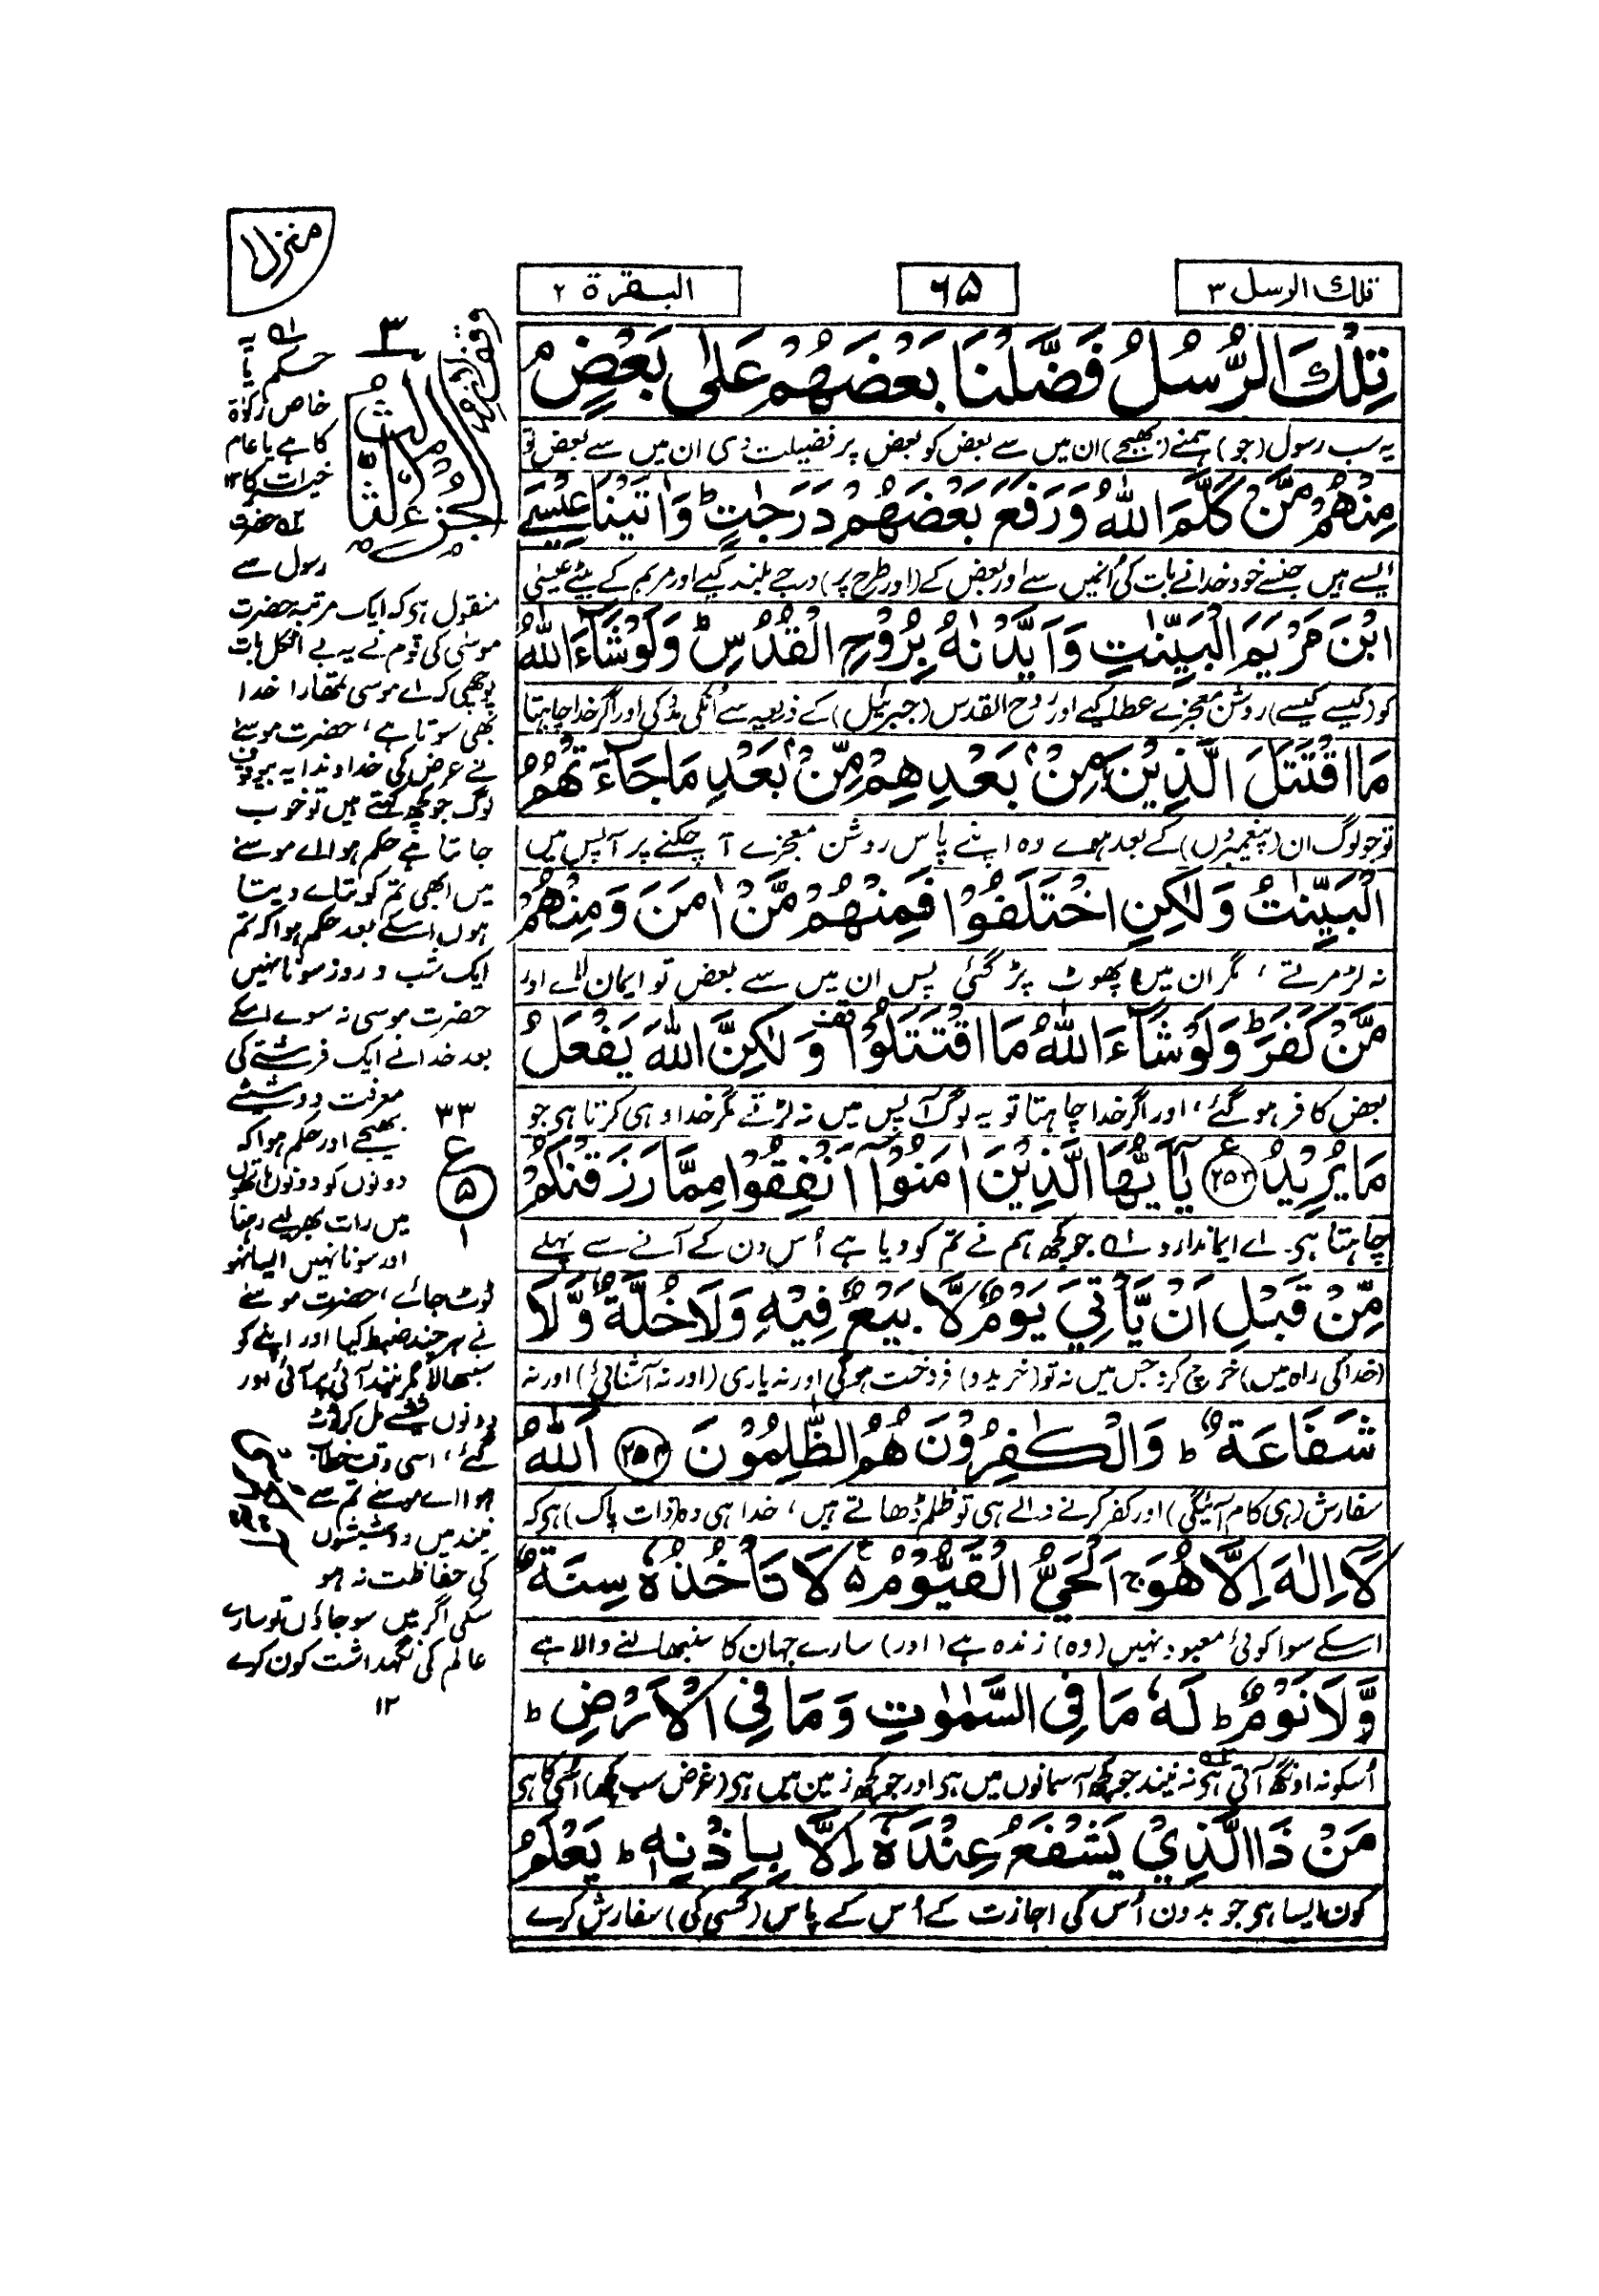 منزل ۱
تلك الرسل ۳
۶۵
البقرة ۲
تِلْكَ الرُّسُلُ فَضَّلْنَا بَعْضَهُمْ عَلٰى بَعْضٍ ۘ
یہ سب رسول (جو) ہمنے (بھیجے) ان میں سے بعض کو بعض پر فضیلت دی ان میں سے بعض تو
مِنْهُمْ مَّنْ كَلَّمَ اللّٰهُ وَرَفَعَ بَعْضَهُمْ دَرَجٰتٍ ؕ وَاٰتَيْنَا عِيْسَى
ایسے ہیں جنسے خود خدا نے بات کی اُنہیں سے اور بعض کے (اور طرح پر) درجے بلند کیے اور مریم کے بیٹے عیسیٰ
ابْنَ مَرْيَمَ الْبَيِّنٰتِ وَاَيَّدْنٰهُ بِرُوْحِ الْقُدُسِ ؕ وَلَوْ شَآءَ اللّٰهُ
کو (کیسے کیسے) روشن معجزے عطا کیے اور روح القدس (جبرئیل) کے ذریعہ سے اُنکی مدد کی اور اگر خدا چاہتا
مَا اقْتَتَلَ الَّذِيْنَ مِنْۢ بَعْدِهِمْ مِّنْۢ بَعْدِ مَا جَآءَتْهُمُ
تو جو لوگ ان (پیغمبروں) کے بعد ہوے وہ اپنے پاس روشن معجزے آ چکنے پر آپس میں
الْبَيِّنٰتُ وَلٰكِنِ اخْتَلَفُوْا فَمِنْهُمْ مَّنْ اٰمَنَ وَمِنْهُمْ
نہ لڑ مرتے ، مگر ان میں پھوٹ پڑ گئی پس ان میں سے بعض تو ایمان لائے اور
مَّنْ كَفَرَ ؕ وَلَوْ شَآءَ اللّٰهُ مَا اقْتَتَلُوْا وَلٰكِنَّ اللّٰهَ يَفْعَلُ
بعض کافر ہو گئے ، اور اگر خدا چاہتا تو یہ لوگ آپس میں نہ لڑتے مگر خدا وہی کرتا ہی جو
مَا يُرِيْدُ ﴿۲۵۳﴾ يٰۤاَيُّهَا الَّذِيْنَ اٰمَنُوْۤا اَنْفِقُوْا مِمَّا رَزَقْنٰكُمْ
چاہتا ہی۔ اے ایماندارو ۱؎ جو کچھ ہم نے تم کو دیا ہے اُس دن کے آنے سے پہلے
مِّنْ قَبْلِ اَنْ يَّاْتِيَ يَوْمٌ لَّا بَيْعٌ فِيْهِ وَلَا خُلَّةٌ وَّلَا
(خدا کی راہ میں) خرچ کرو جس میں نہ تو (خرید و) فروخت ہوگی اور نہ یاری (اور نہ آشنائی) اور نہ
شَفَاعَةٌ ؕ وَالْكٰفِرُوْنَ هُمُ الظّٰلِمُوْنَ ﴿۲۵۴﴾ اَللّٰهُ
سفارش (ہی کام آئیگی) اور کفر کرنے والے ہی تو ظلم ڈھاتے ہیں ، خدا ہی وہ (ذات پاک) ہی کہ
لَاۤ اِلٰهَ اِلَّا هُوَ ۚ اَلْحَيُّ الْقَيُّوْمُ ۵ لَا تَاْخُذُهٗ سِنَةٌ
اسکے سوا کوئی معبود نہیں (وہ) زندہ ہے (اور) سارے جہان کا سنبھالنے والا ہے
وَّلَا نَوْمٌ ؕ لَهٗ مَا فِى السَّمٰوٰتِ وَمَا فِى الْاَرْضِ ؕ
اُسکو نہ اونگھ آتی ہی نہ نیند جو کچھ آسمانوں میں ہی اور جو کچھ زمین میں ہی (غرض سب کچھ) اُسی کا ہی
مَنْ ذَا الَّذِيْ يَشْفَعُ عِنْدَهٗۤ اِلَّا بِاِذْنِهٖ ؕ يَعْلَمُ
کون ایسا ہی جو بدون اُس کی اجازت کے اُس کے پاس (کسی کی) سفارش کرے
۳
الجزء الثالث
۱؎ یہ
حکم یا
خاص زکوٰۃ
کا ہے یا عام
خیرات کا ۱۲
۲؎ حضرت
رسول سے
منقول ہی کہ ایک مرتبہ حضرت
موسٰی کی قوم نے یہ بے اٹکل بات
پوچھی کہ اے موسی تمھارا خدا
بھی سوتا ہے ، حضرت موسے
نے عرض کی خداوندا یہ بیوقوف
لوگ جو کچھ کہتے ہیں تو خوب
جانتا ہے حکم ہوا اے موسے
میں ابھی تم کو بتائے دیتا
ہوں اسکے بعد حکم ہوا کہ تم
ایک شب و روز سونا نہیں
حضرت موسی نہ سوے اسکے
بعد خدا نے ایک فرشتے کی
معرفت دو شیشے
بھیجے اور حکم ہوا کہ
دونوں کو دونوں ہاتھوں
میں رات بھر لیے رہنا
اور سونا نہیں ایسا نہو
ٹوٹ جائے ، حضرت موسے
نے ہر چند ضبط کیا اور اپنے کو
سنبھالا مگر نیند آئی پر آئی اور
دونوں شیشے مل کر ٹوٹ
گئے ، اسی وقت خطاب
ہوا اے موسے تم سے
نیند میں دو شیشوں
کی حفاظت نہ ہو
سکی اگر میں سو جاؤں تو سارے
عالم کی نگہداشت کون کرے
۱۲
۳۳
ع
۵
۱